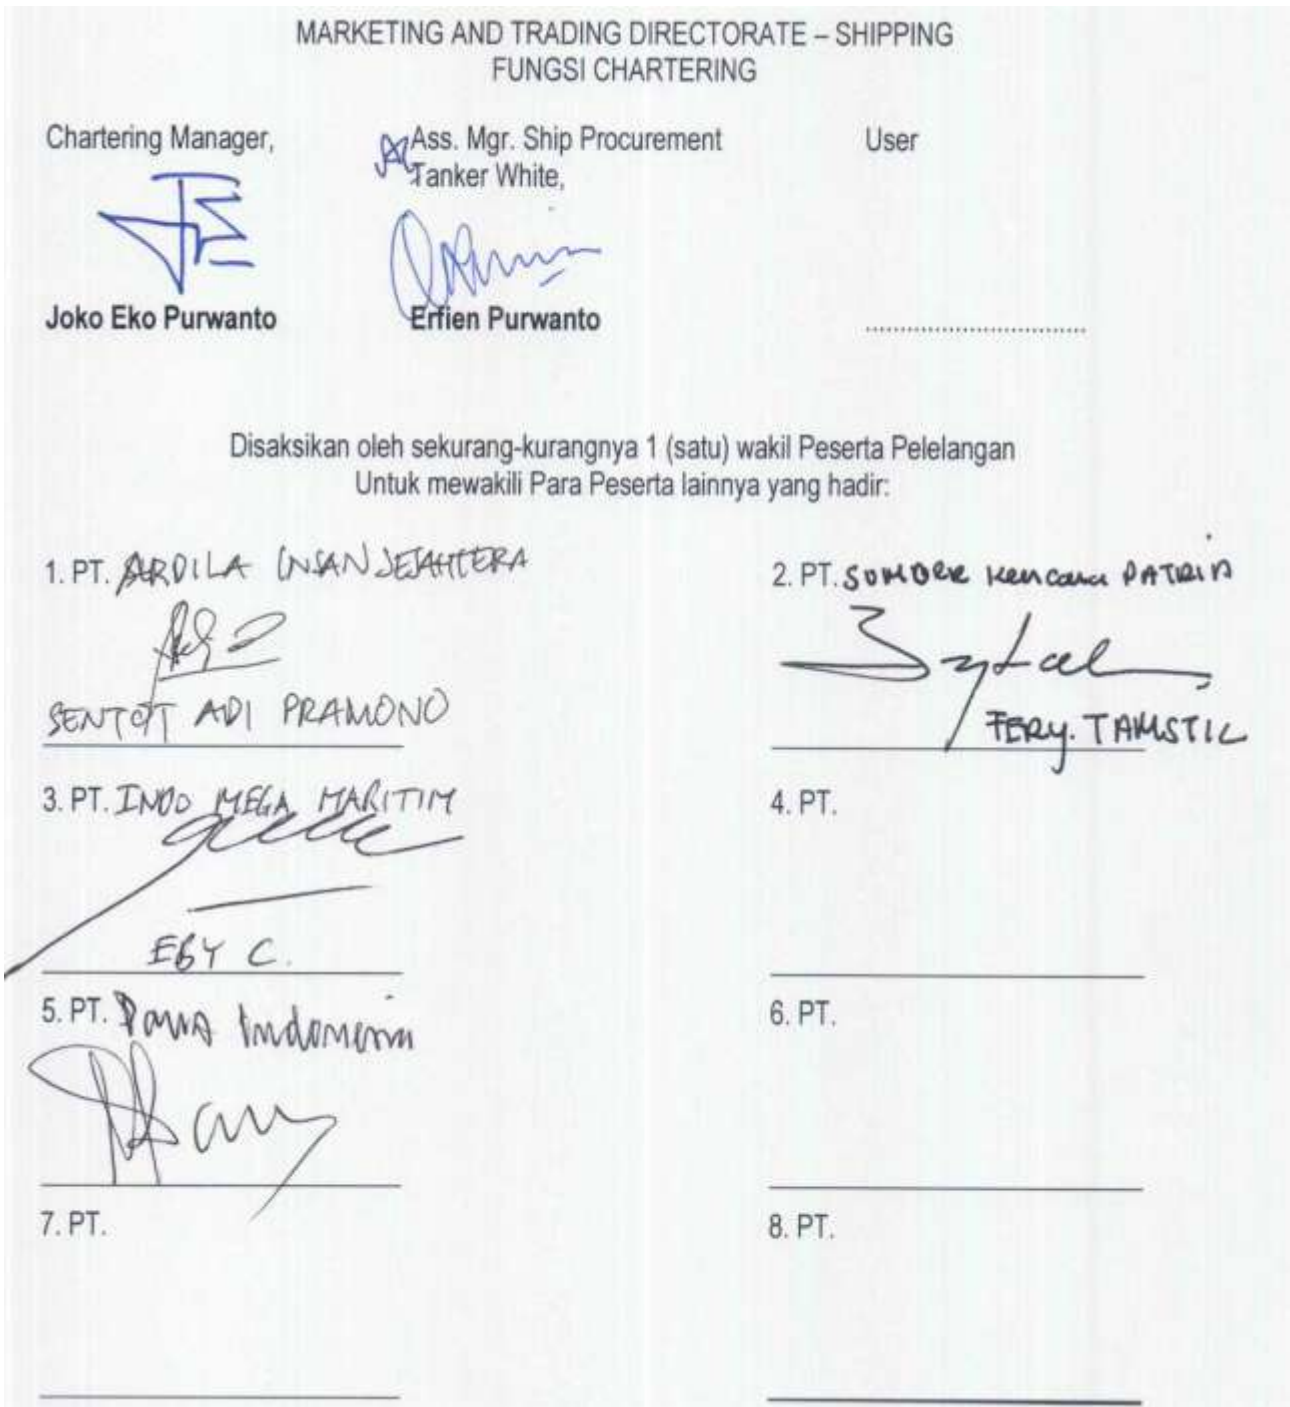 MARKETING AND TRADING DIRECTORATE – SHIPPING
FUNGSI CHARTERING
Chartering Manager,
Ass. Mgr. Ship Procurement
Tanker White,
User
Joko Eko Purwanto
Erfien Purwanto
..............................
Disaksikan oleh sekurang-kurangnya 1 (satu) wakil Peserta Pelelangan
Untuk mewakili Para Peserta lainnya yang hadir:
1. PT. ARDILA INSAN SEJAHTERA
SENTOT ADI PRAMONO
2. PT. SUMBER Kencana PATRIA
FERY. TAMSTIL
3. PT. INDO MEGA MARITIM
EGY C.
4. PT.
5. PT. Indonesia
6. PT.
7. PT.
8. PT.